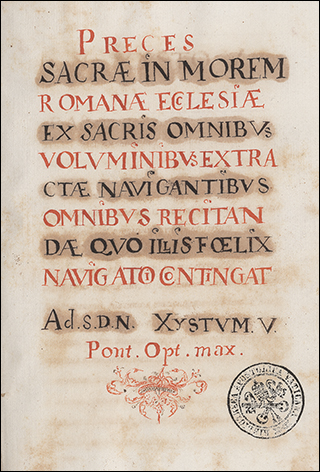 PRECES
SACRÆ IN MOREM
ROMANÆ ECCLESIÆ
EX SACRIS OMNIBVS
VOLVMINIBVS EXTRA
CTÆ NAVIGANTIBVS
OMNIBVS RECITAN
DÆ QVO ILLIS FŒLIX
NAVIGATIO CONTINGAT
Ad. S. D. N. XYSTVM. V.
Pont. Opt. max.
BIBLIOTHECA APOSTOLICA VATICANA